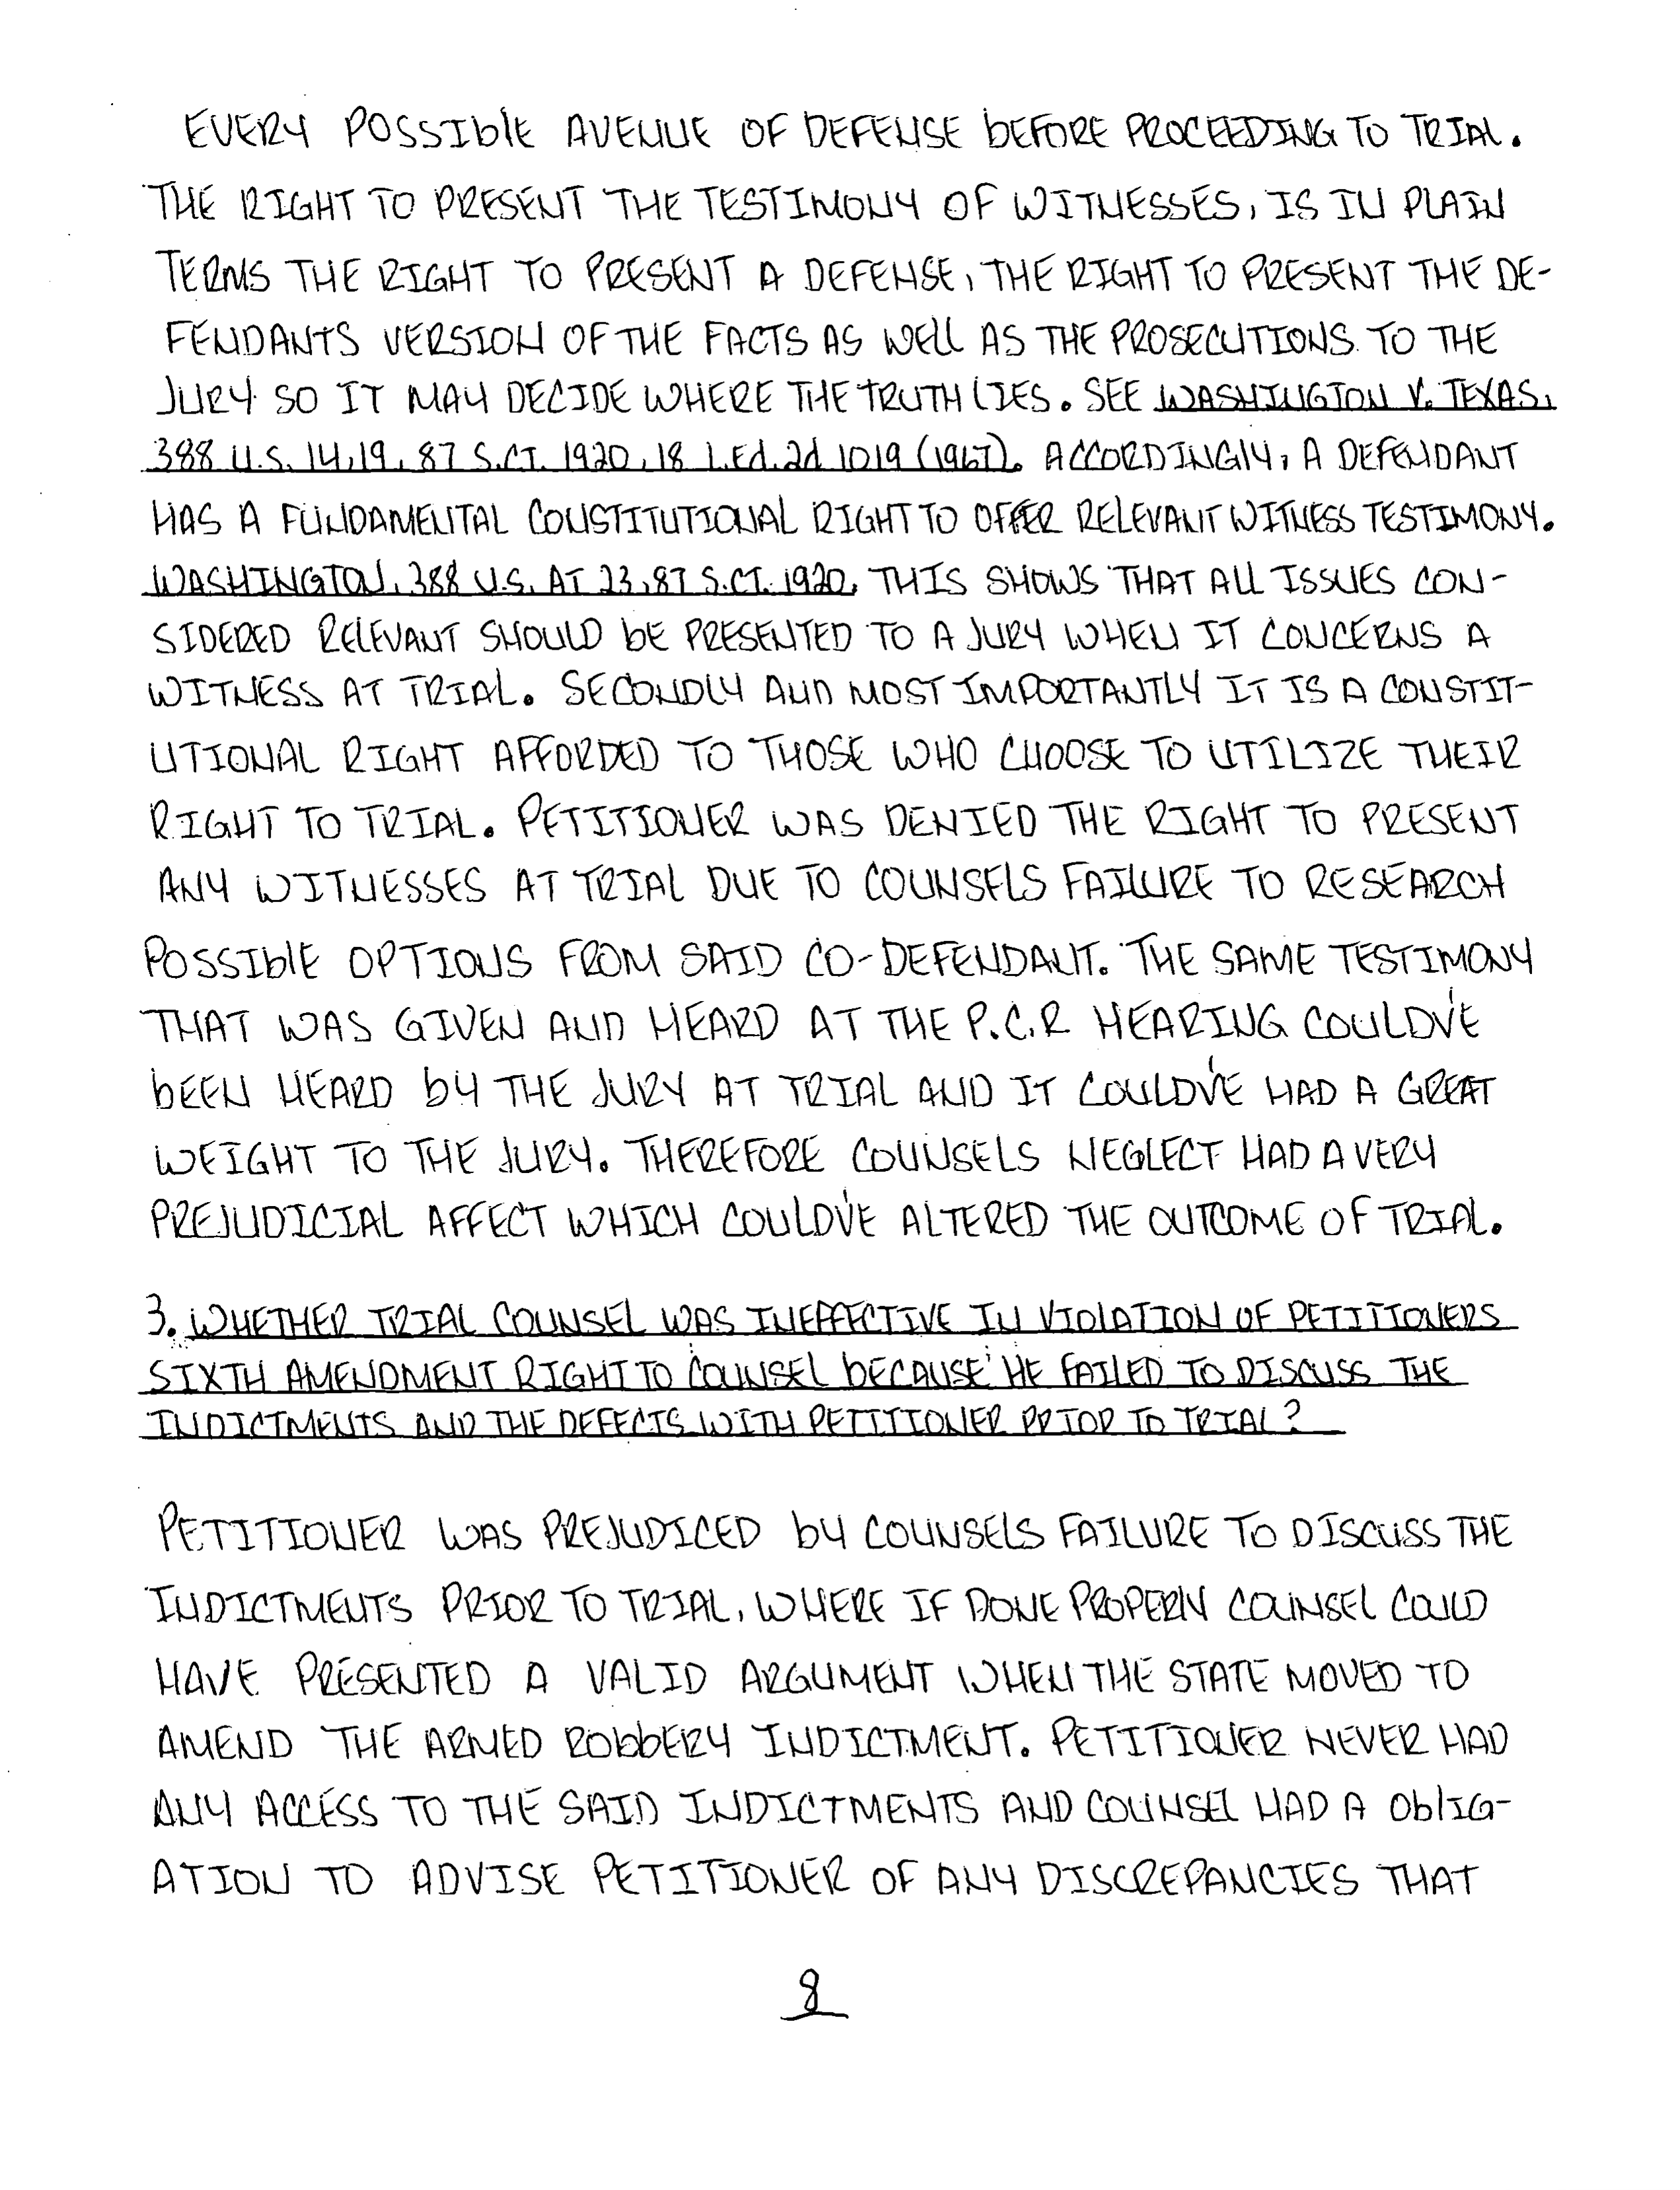 EVERY POSSIblE AVENUE OF DEFENSE bEFORE PROCEEDING TO TRIAL.
THE RIGHT TO PRESENT THE TESTIMONY OF WITNESSES, IS IN PLAIN
TERMS THE RIGHT TO PRESENT A DEFENSE, THE RIGHT TO PRESENT THE DE-
FENDANTS VERSION OF THE FACTS AS WEll AS THE PROSECUTIONS TO THE
JURY SO IT MAY DECIDE WHERE THE TRUTH LIES. SEE WASHINGTON V. TEXAS,
388 U.S. 14,19, 87 S.CT. 1920, 18 L.Ed.2d 1019 (1967). ACCORDINGLY, A DEFENDANT
HAS A FUNDAMENTAL CONSTITUTIONAL RIGHT TO OFFER RELEVANT WITNESS TESTIMONY.
WASHINGTON, 388 U.S. AT 23, 87 S.CT. 1920, THIS SHOWS THAT ALL ISSUES CON-
SIDERED RELEVANT SHOULD bE PRESENTED TO A JURY WHEN IT CONCERNS A
WITNESS AT TRIAL. SECONDLY AND MOST IMPORTANTLY IT IS A CONSTIT-
UTIONAL RIGHT AFFORDED TO THOSE WHO CHOOSE TO UTILIZE THEIR
RIGHT TO TRIAL. PETITIONER WAS DENIED THE RIGHT TO PRESENT
ANY WITNESSES AT TRIAL DUE TO COUNSELS FAILURE TO RESEARCH
POSSIblE OPTIONS FROM SAID CO-DEFENDANT. THE SAME TESTIMONY
THAT WAS GIVEN AND HEARD AT THE P.C.R HEARING COULDV'E
bEEN HEARD bY THE JURY AT TRIAL AND IT COULDV'E HAD A GREAT
WEIGHT TO THE JURY. THEREFORE COUNSELS NEGLECT HAD A VERY
PREJUDICIAL AFFECT WHICH COULDV'E ALTERED THE OUTCOME OF TRIAL.
3. WHETHER TRIAL COUNSEL WAS INEFFECTIVE IN VIOLATION OF PETITIONERS
SIXTH AMENDMENT RIGHT TO COUNSEL bECAUSE HE FAILED TO DISCUSS THE
INDICTMENTS AND THE DEFECTS WITH PETITIONER PRIOR TO TRIAL?
PETITIONER WAS PREJUDICED bY COUNSELS FAILURE TO DISCUSS THE
INDICTMENTS PRIOR TO TRIAL, WHERE IF DONE PROPERLY COUNSEL COULD
HAVE PRESENTED A VALID ARGUMENT WHEN THE STATE MOVED TO
AMEND THE ARMED RObbERY INDICTMENT. PETITIONER NEVER HAD
ANY ACCESS TO THE SAID INDICTMENTS AND COUNSEL HAD A OblIG-
ATION TO ADVISE PETITIONER OF ANY DISCREPANCIES THAT
8